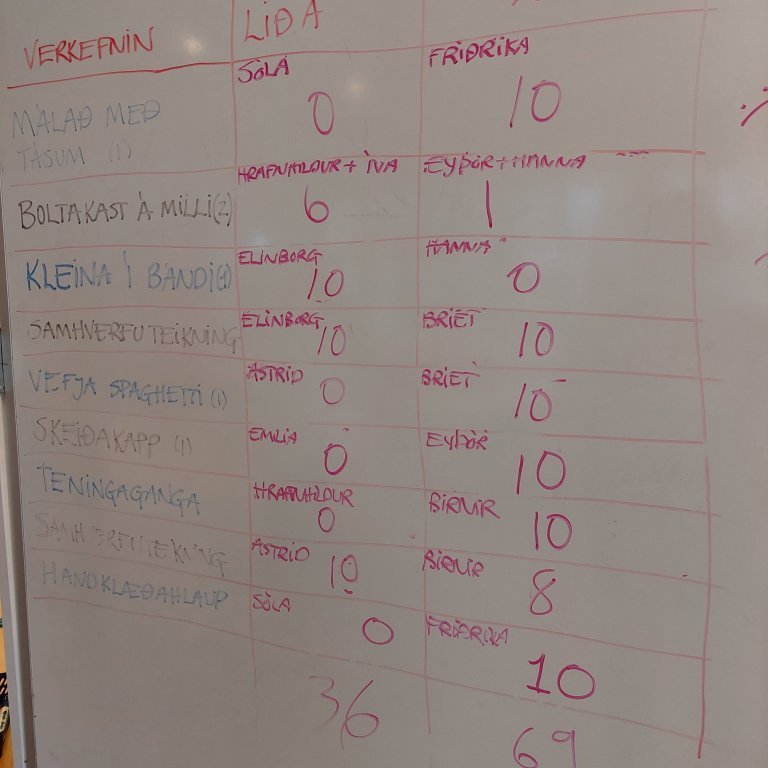 VERKEFNIN
LIÐ A
MÁLAÐ MEÐ
TÁSUM (1)
SÓLA
0
FRIÐRIKA
10
BOLTAKAST Á MILLI (2)
HRAFNHILDUR + ÍVA
6
EYÞÓR + HANNA
1
KLEINA Í BANDI
ELÍNBORG
10
HANNA
0
SAMHVERFUTEIKNING
ELÍNBORG
10
BRÍET
10
VEFJA SPAGHETTÍ (1)
ÁSTRÍÐ
0
BRÍET
10
SKEIÐAKAPP (1)
EMILÍA
0
EYÞÓR
10
TENINGAGANGA
HRAFNHILDUR
0
BIRNIR
10
SAMHVERFUTEIKNING
ÁSTRÍÐ
10
BIRNIR
8
HANDKLÆÐAHLAUP
SÓLA
0
FRIÐRIKA
10
36
69